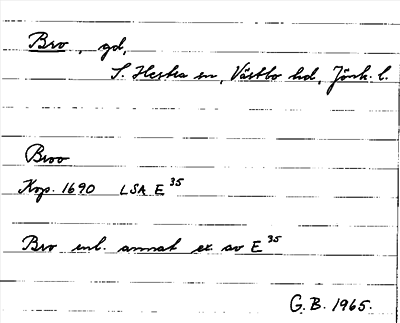 Bro, gd,
S. Hestra sn, Västbo hd, Jönk. l.
Broo
Kop. 1690 LSA E 35
Bro enl. annat ex av E 35
G. B. 1965.